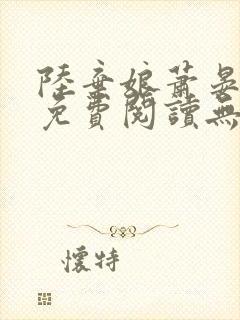 陸棄娘蕭晏
免費閱讀無
懷特